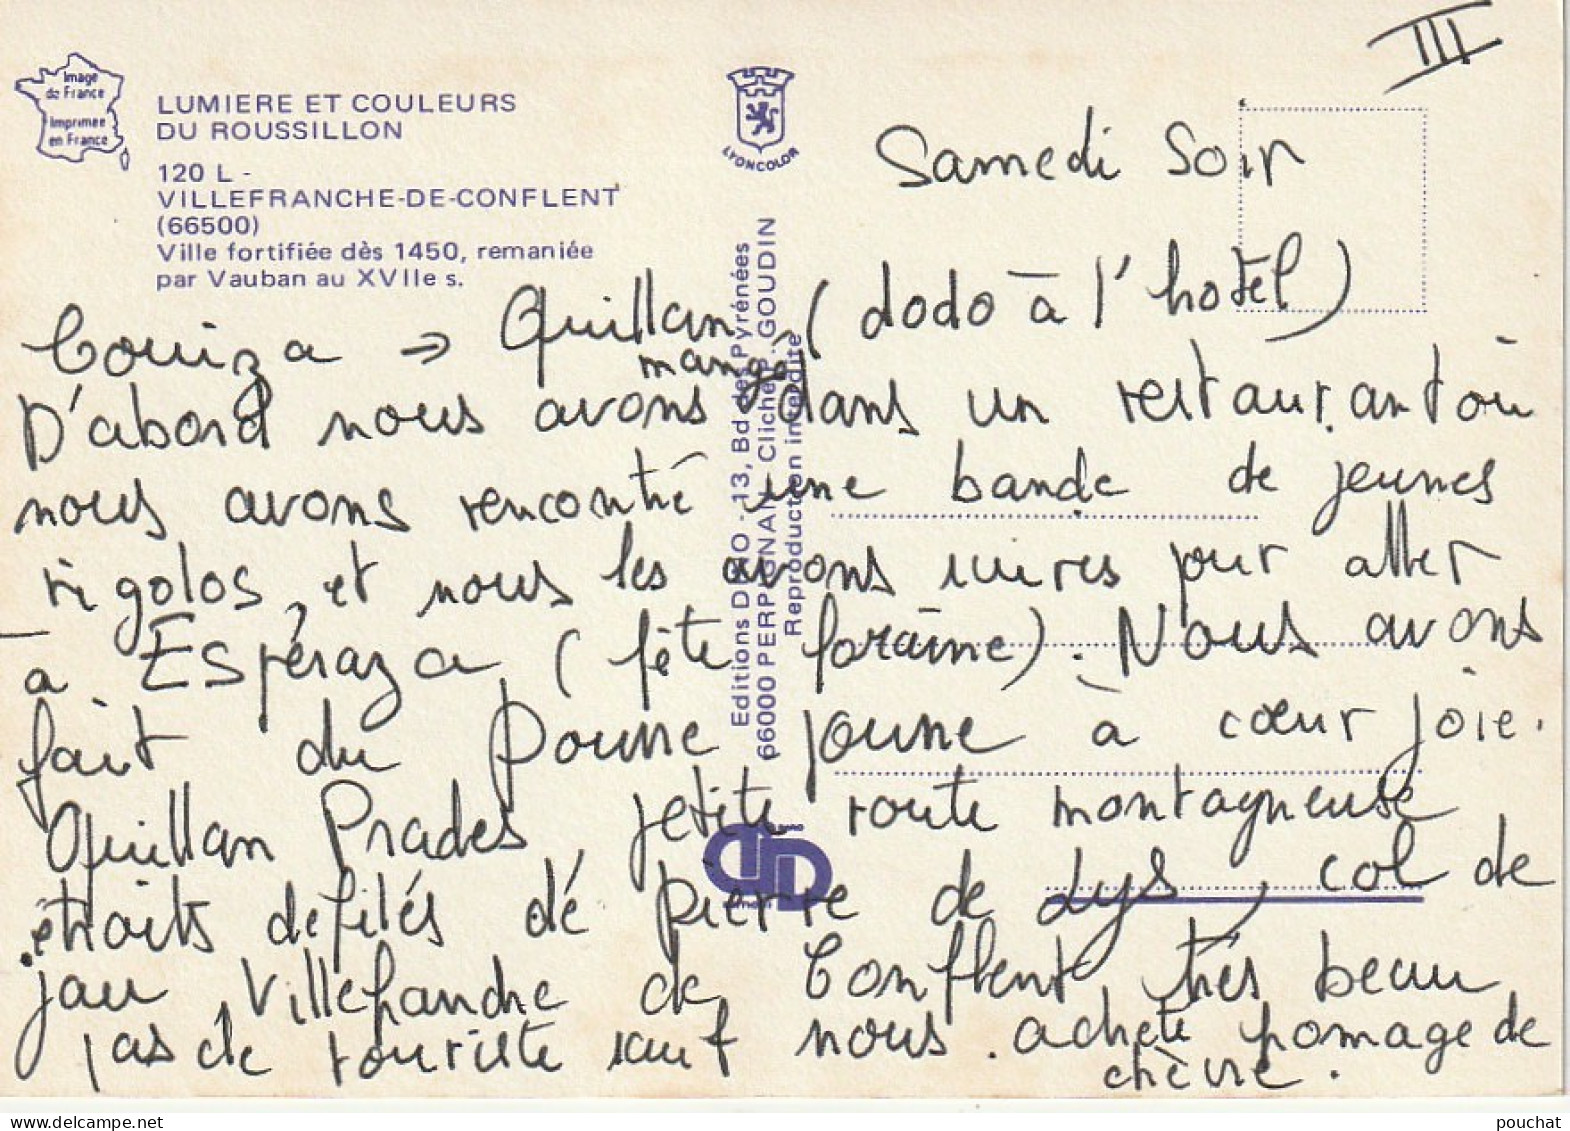 III
Image
de France
Imprimée
en France
LUMIERE ET COULEURS
DU ROUSSILLON
120 L -
VILLEFRANCHE-DE-CONFLENT
(66500)
Ville fortifiée dès 1450, remaniée
par Vauban au XVIIe s.
LYONCOLOR
Editions DINO - 13, Bd des Pyrénées
66000 PERPIGNAN - Clichés J. GOUDIN
Reproduction interdite
Samedi Soir
Couiza → Quillan (dodo à l'hotel)
mangé
D'abord nous avons dans un restaurant où
nous avons rencontré une bande de jeunes
rigolos, et nous les avons suivis pour aller
à Espéraza (fête foraine). Nous avons
fait du Pousse pousse à cœur joie.
Quillan Prades petite route montagneuse
étroits défilés de pierre de Lys, col de
jau, Villefranche de Conflent, très beau
pas de touriste sauf nous. acheté fromage de
chèvre.
pouchat